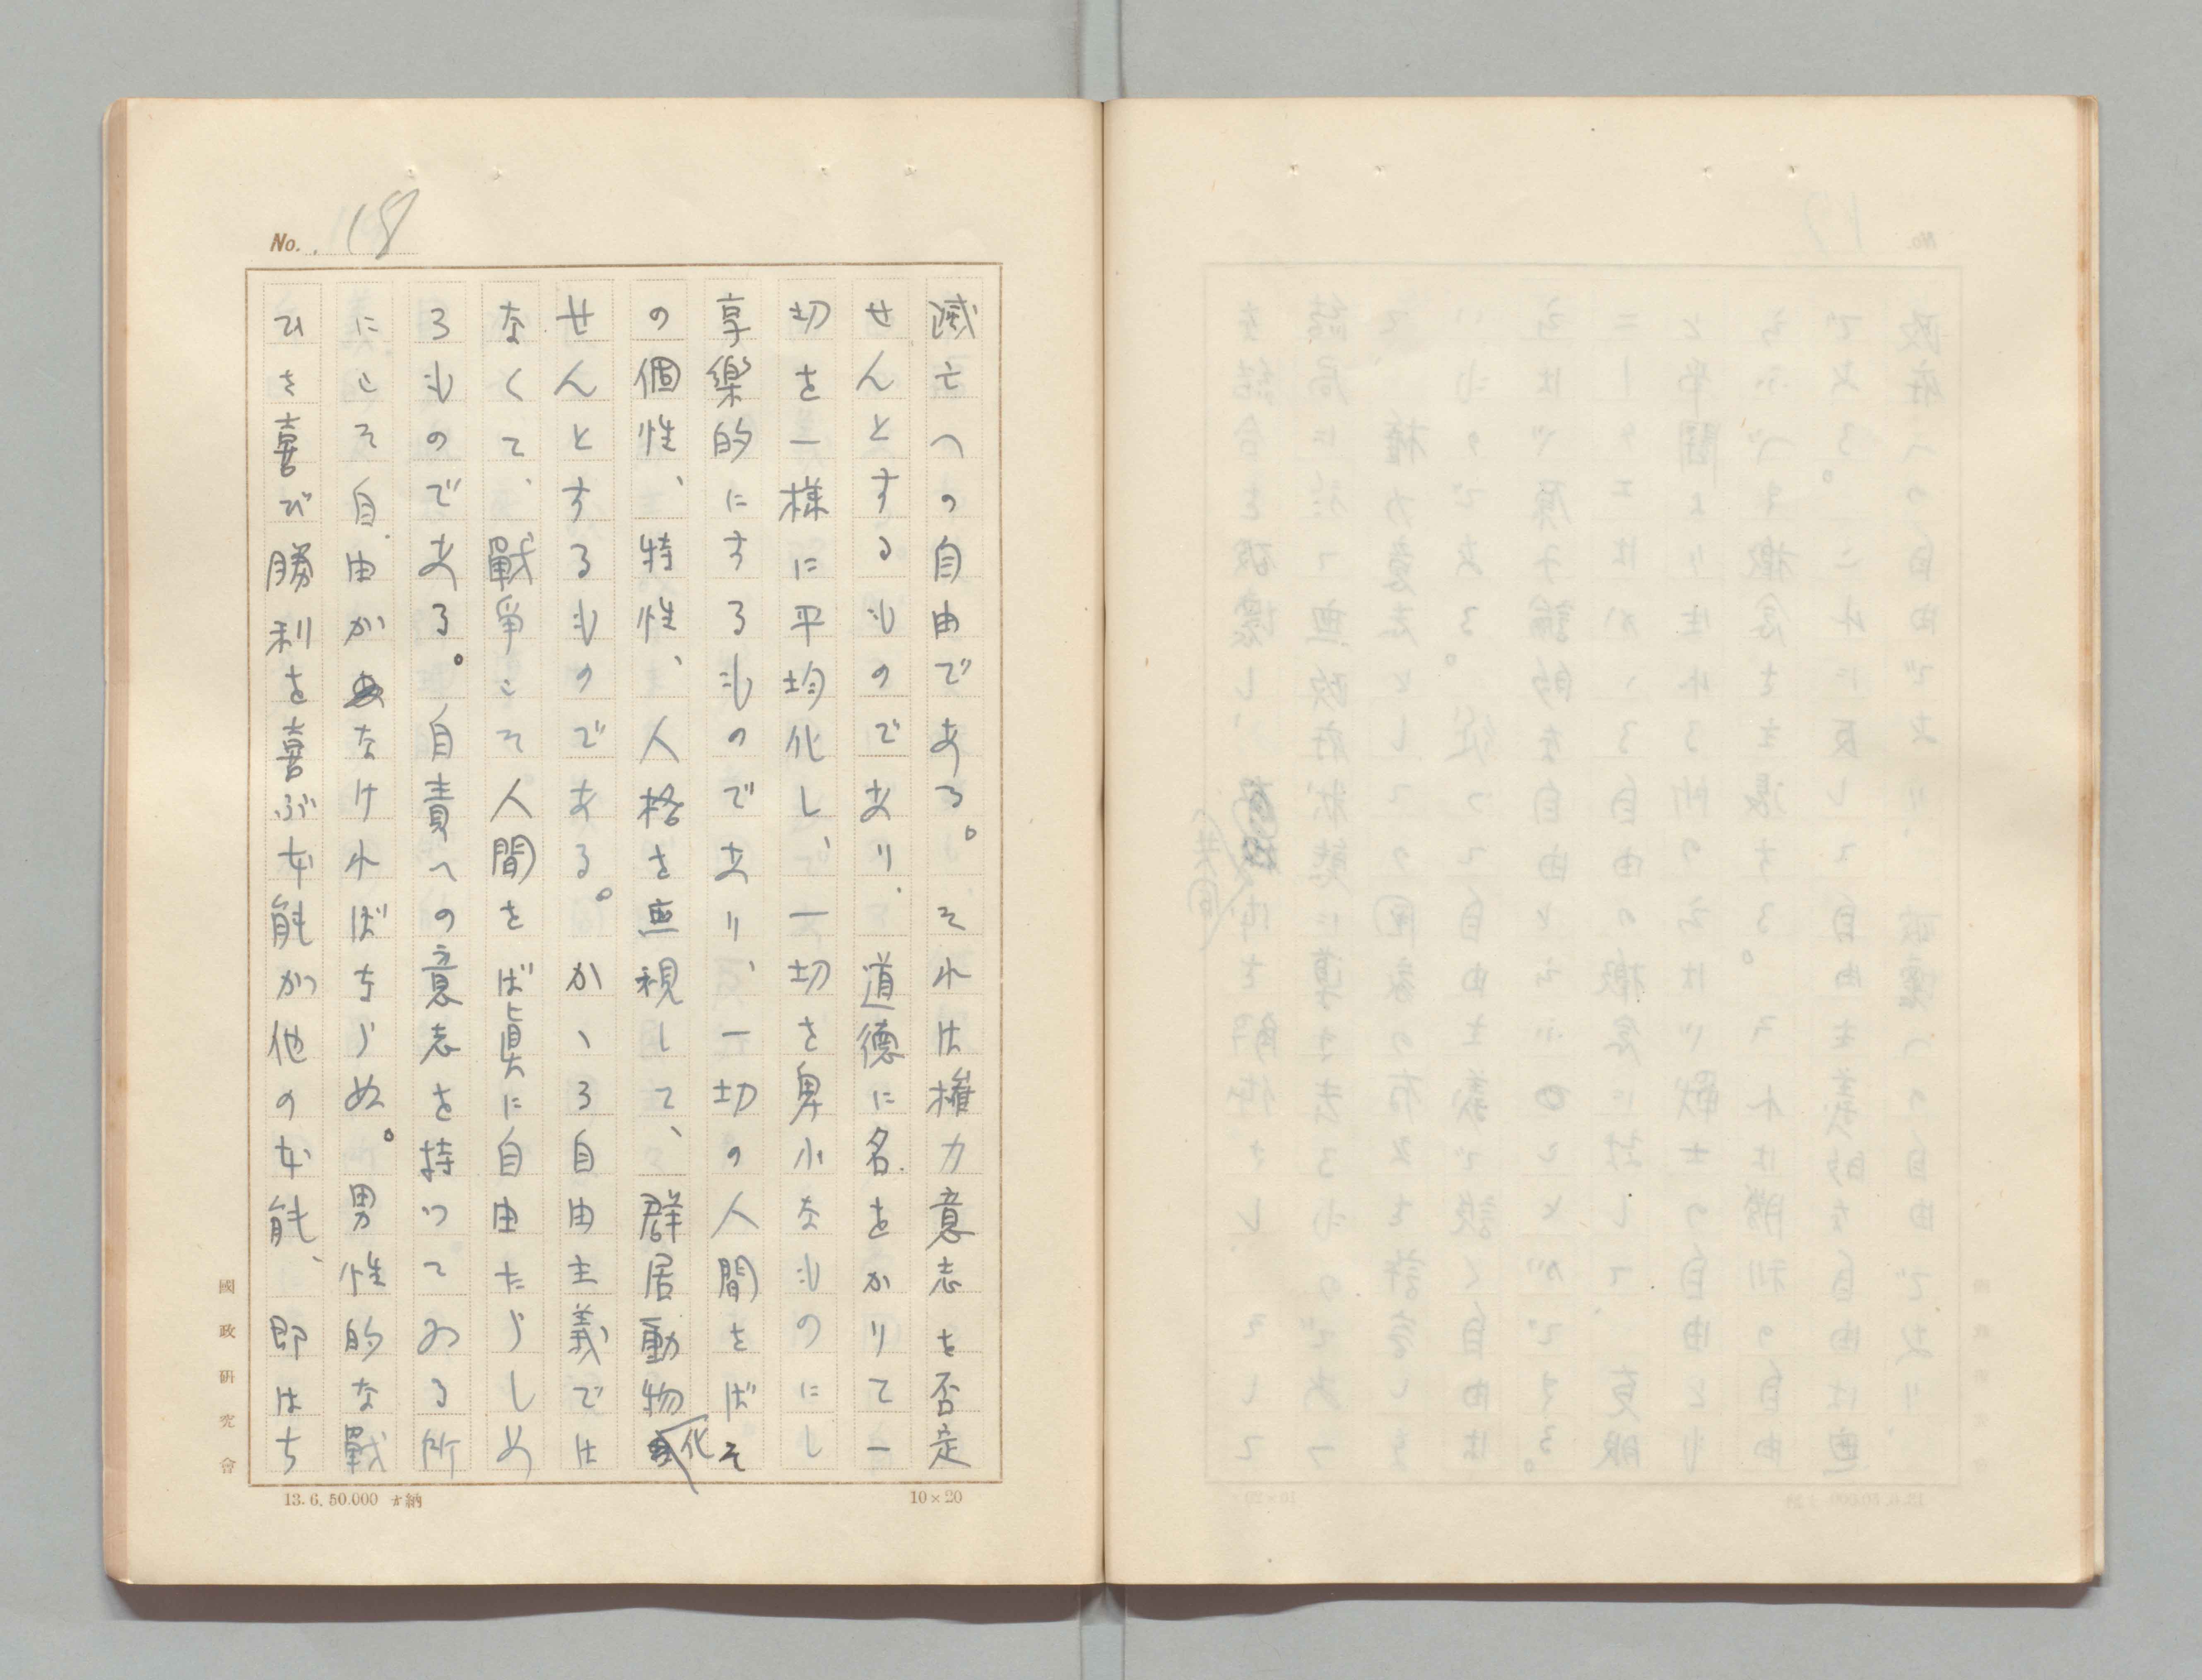 No. 18
滅亡への自由である。それは権力意志を否定
せんとするものであり、道徳に名をかりて一
切を一様に平均化し、一切を卑小なものにし
享樂的にするものであり、一切の人間をばそ
の個性、特性、人格を無視して、群居動物化
せんとするものである。かゝる自由主義では
なくて、戰爭こそ人間をば眞に自由たらしめ
るものである。自責への意志を持つてゐる所
にこそ自由がなければならぬ。男性的な戰
ひを喜び勝利を喜ぶ本能が他の本能、即はち
國政研究會
13.6.50.000 納
10×20